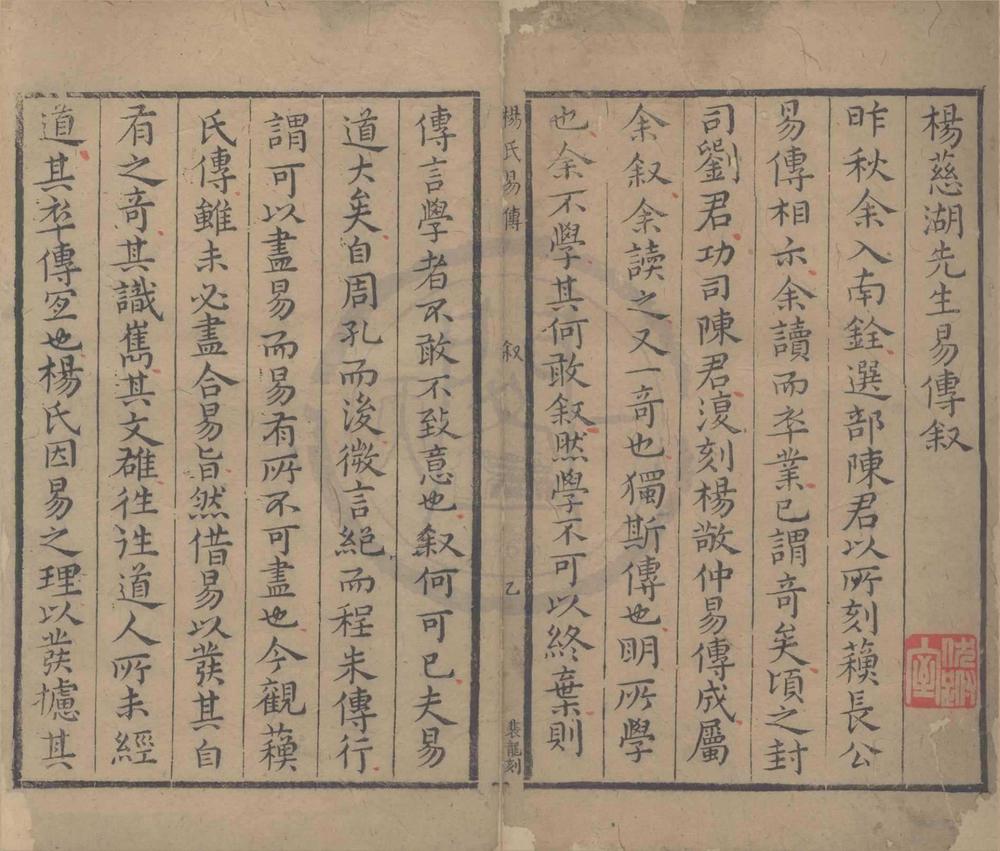 楊慈湖先生易傳叙
昨秋余入南銓選部陳君以所刻蘓長公
易傳相示余讀而卒業已謂奇矣頃之封
司劉君功司陳君復刻楊敬仲易傳成屬
余叙余讀之又一奇也獨斯傳也明所學
也余不學其何敢叙然學不可以終棄則
楊氏易傳
叙
乙
裴龍刻
傳言學者不敢不致意也叙何可已夫易
道大矣自周孔而後微言絕而程朱傳行
謂可以盡易而易有所不可盡也今觀蘓
氏傳雖未必盡合易旨然借易以發其自
有之竒其識雋其文雄徃徃道人所未經
道其卒傳宜也楊氏因易之理以發攄其